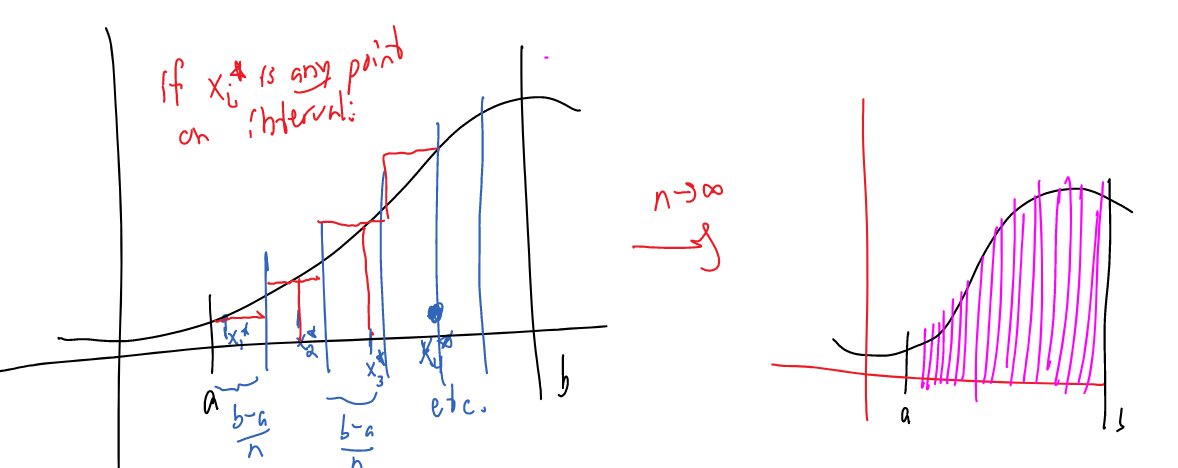 If xᵢ* is any point
on interval:
n→∞
x₁*
x₂*
x₃*
x₄*
a
b
b-a
n
b-a
n
etc.
a
b